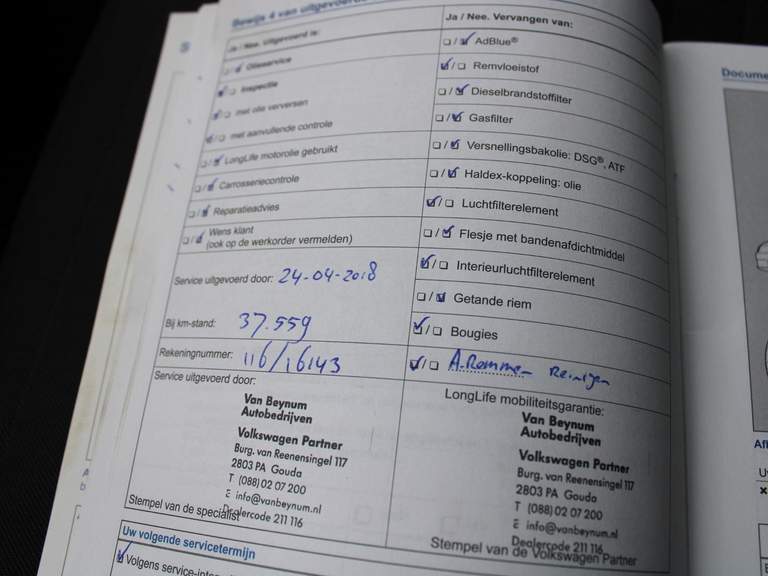 Bewijs 4 van uitgevoerde
Ja / Nee. Uitgevoerd is:
Olieservice
Inspectie
met olie verversen
met aanvullende controle
LongLife motorolie gebruikt
Carrosseriecontrole
Reparatieadvies
Wens klant
(ook op de werkorder vermelden)
Service uitgevoerd door: 24-04-2018
Bij km-stand: 37.559
Rekeningnummer: 116/16143
Service uitgevoerd door:
Van Beynum
Autobedrijven
Volkswagen Partner
Burg. van Reenensingel 117
2803 PA Gouda
T (088) 02 07 200
E info@vanbeynum.nl
Dealercode 211 116
Stempel van de specialist
Ja / Nee. Vervangen van:
AdBlue®
Remvloeistof
Dieselbrandstoffilter
Gasfilter
Versnellingsbakolie: DSG®, ATF
Haldex-koppeling: olie
Luchtfilterelement
Flesje met bandenafdichtmiddel
Interieurluchtfilterelement
Getande riem
Bougies
A.Remmen Reinigen
LongLife mobiliteitsgarantie:
Van Beynum
Autobedrijven
Volkswagen Partner
Burg. van Reenensingel 117
2803 PA Gouda
T (088) 02 07 200
E info@vanbeynum.nl
Dealercode 211 116
Stempel van de Volkswagen Partner
Uw volgende servicetermijn
Volgens service-inte
Docume